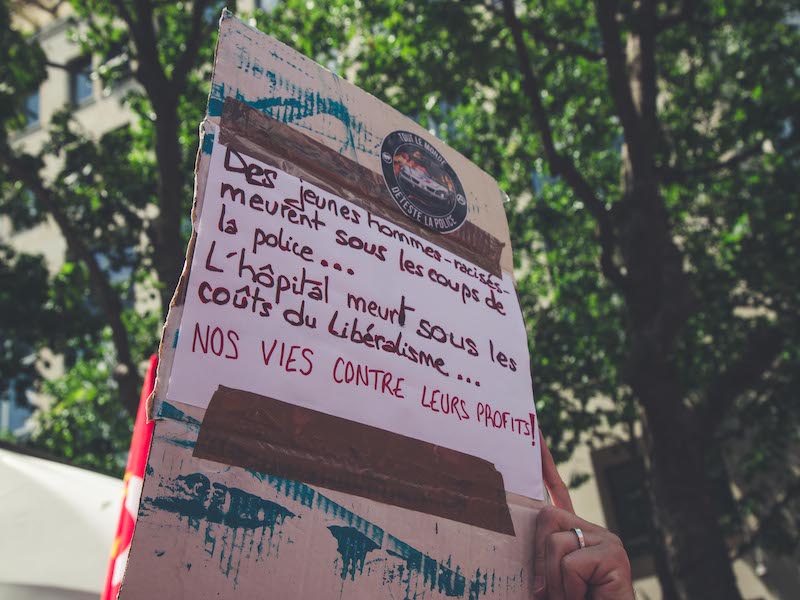 TOUT LE MONDE
DÉTESTE LA POLICE
Des jeunes hommes-racisés-
meurent sous les coups de
la police...
L'hôpital meurt sous les
coûts du Libéralisme...
NOS VIES CONTRE LEURS PROFITS!